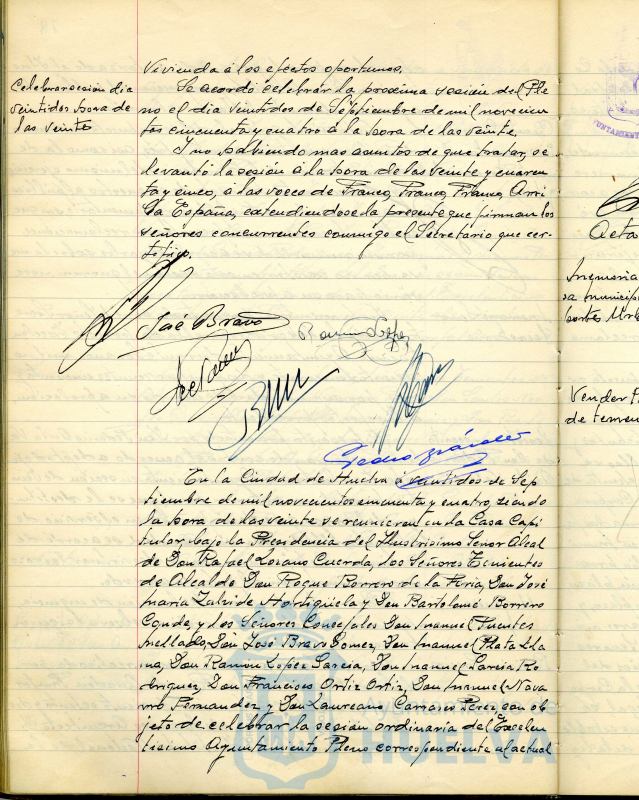 Vivienda á los efectos oportunos.
Celebrar sesión dia
veintidos hora de
las veinte
Se acordó celebrar la proxima sesión del Ple
no el dia veintidos de Septiembre de mil novecien
tos cincuenta y cuatro á la hora de las veinte.
Y no habiendo mas asuntos de que tratar, se
levantó la sesión á la hora de las veinte y cuaren
ta y cinco, á las voces de Franco, Franco, Franco, Arri
ba España, extendiendose la presente que firman los
señores concurrentes conmigo el Secretario que cer-
tifico.
José Bravo
Ramon Lopez
Pedro
En la Ciudad de Huelva á veintidos de Sep
tiembre de mil novecientos cincuenta y cuatro, siendo
la hora de las veinte se reunieron en la Casa Capi
tular, bajo la Presidencia del Ilustrisimo Señor Alcal
de Don Rafael Lozano Cuerda, los Señores Tenientes
de Alcalde Don Roque Borrero de la Feria, Don José
Maria Zalvide Hortigüela y Don Bartolomé Borrero
Conde, y los Señores Concejales Don Manuel Fuentes
Mellado, Don José Bravo Gomez, Don Manuel Plata Lla
na, Don Ramon Lopez Garcia, Don Manuel Garcia Ro
driguez, Don Francisco Ortiz Ortiz, Don Manuel Nava
rro Fernandez y Don Laureano Carrares Perez, con ob
jeto de celebrar la sesión ordinaria del Excelen
tisimo Ayuntamiento Pleno correspondiente al actual
HUELVA
Acta
Vender
de terren